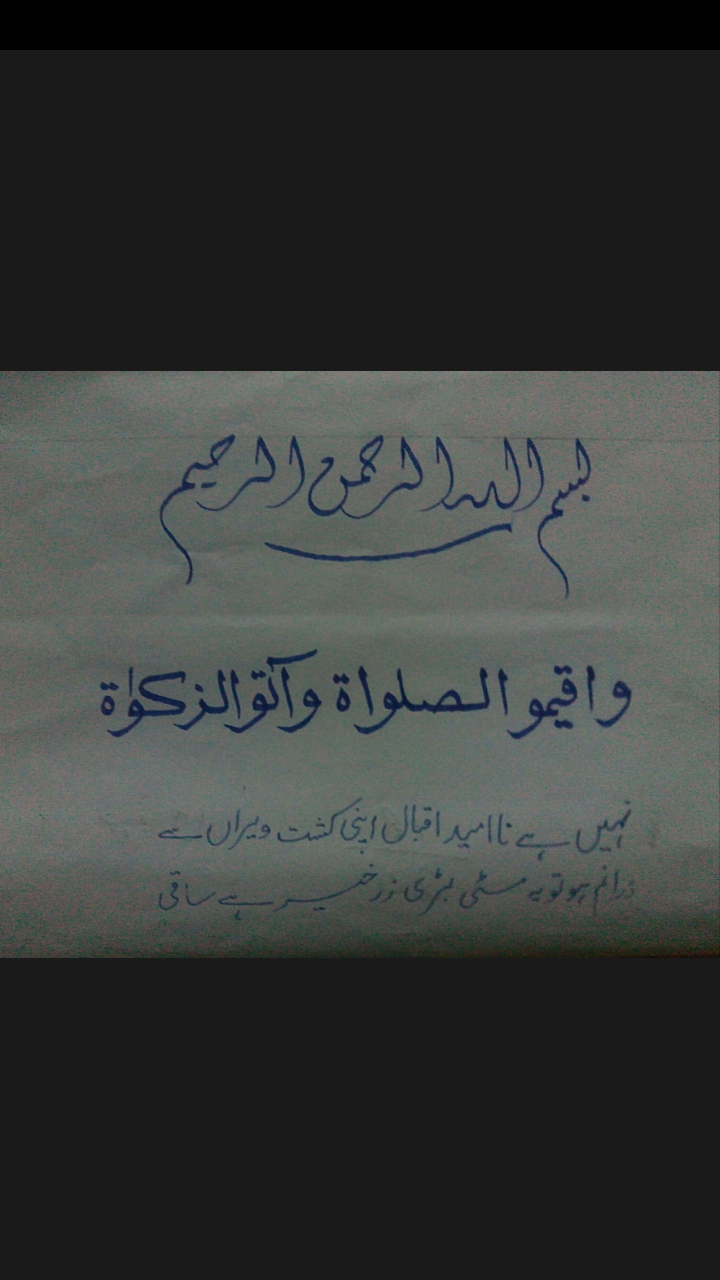 بسم الله الرحمن الرحيم
واقیمو الصلواة وآتو الزكوٰة
نہیں ہے ناامید اقبال اپنی کشت ویراں سے
ذرا نم ہو تو یہ مٹی بڑی زرخیز ہے ساقی